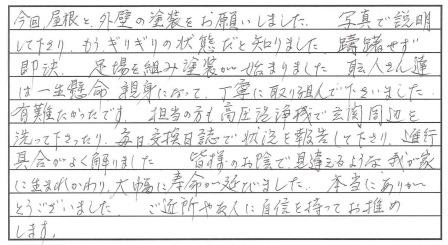 今回屋根と、外壁の塗装をお願いしました。 写真で説明
して下さり、もうぎりぎりの状態だと知りました 躊躇せず
即決、 足場を組み塗装が始まりました 職人さん達
は一生懸命 親身になって、丁寧に取り組んで下さいました
有難たかったです。 担当の方も高圧洗浄機で玄関周辺を
洗って下さったり、毎日交換日誌で状況を報告して下さり 進行
具合がよく解りました 皆様のお陰で見違えるような我が家
に生まれかわり、大幅に寿命が延びました。 本当にありが
とうございました ご近所や友人に自信を持ってお推め
します。